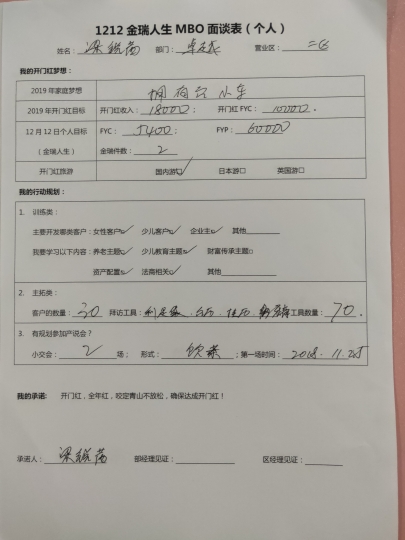 1212 金瑞人生 MBO 面谈表（个人）
姓名： 部门： 营业区： 二区
我的开门红梦想：
2019 年家庭梦想 拥有 小车
2019 年开门红目标 开门红收入：18000； 开门红 FYC：10000.
12 月 12 日个人目标 FYC：5400； FYP：60000
（金瑞人生） 金瑞件数：2
开门红旅游 国内游☑ 日本游□ 英国游□
我的行动规划：
1. 训练类：
主要开发哪类客户：女性客户☑ 少儿客户☑ 企业主☑ 其他
我要学习以下内容：养老主题☑ 少儿教育主题☑ 财富传承主题□
资产配置☑ 法商相关☑ 其他
2. 主拓类：
客户的数量：30 拜访工具： 台历、 工具数量：70.
3. 有规划参加产说会？
小交会：2 场； 形式： ；第一场时间：2018.11.25
我的承诺： 开门红，全年红，咬定青山不放松，确保达成开门红！
承诺人： 部经理见证： 区经理见证：